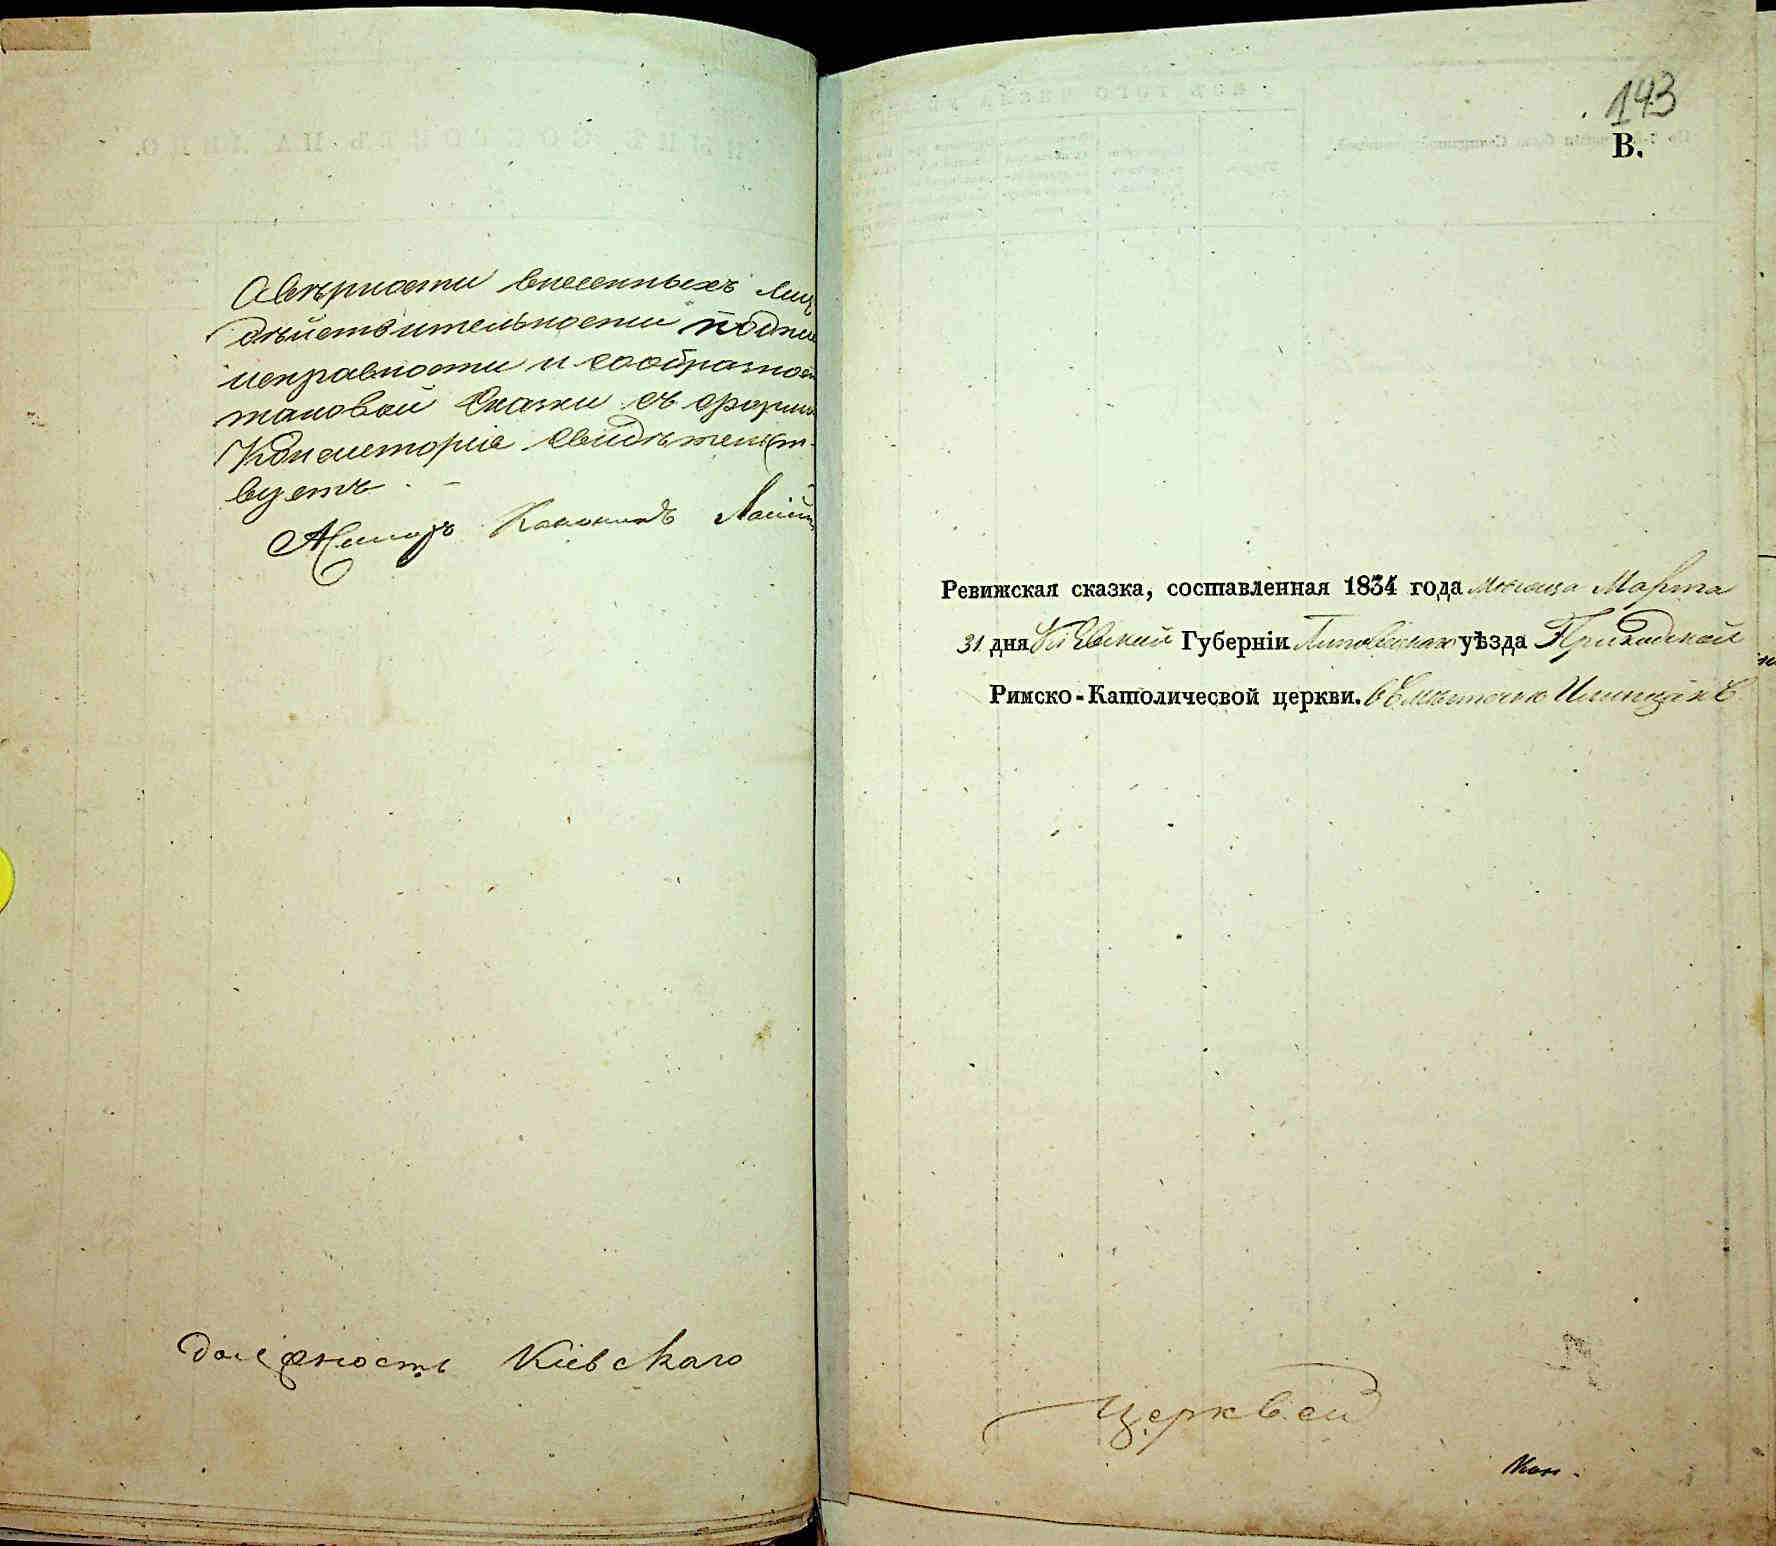 О вѣрности внесенныхъ лиц
дѣйствительности подпи
исправности и сообразнос
таковой Сказки съ формою
Консисторія свидѣтельст-
вуетъ. –
Асессоръ Каноникъ
должность Кіевскаго
143
В.
Ревижская сказка, составленная 1834 года мѣсяца Марта
31 дня Кіевской Губерніи Липовецкаго уѣзда Приходской
Римско-Католичесвой церкви. въ мѣстечкѣ Илинцахъ
Церквей
Кон.